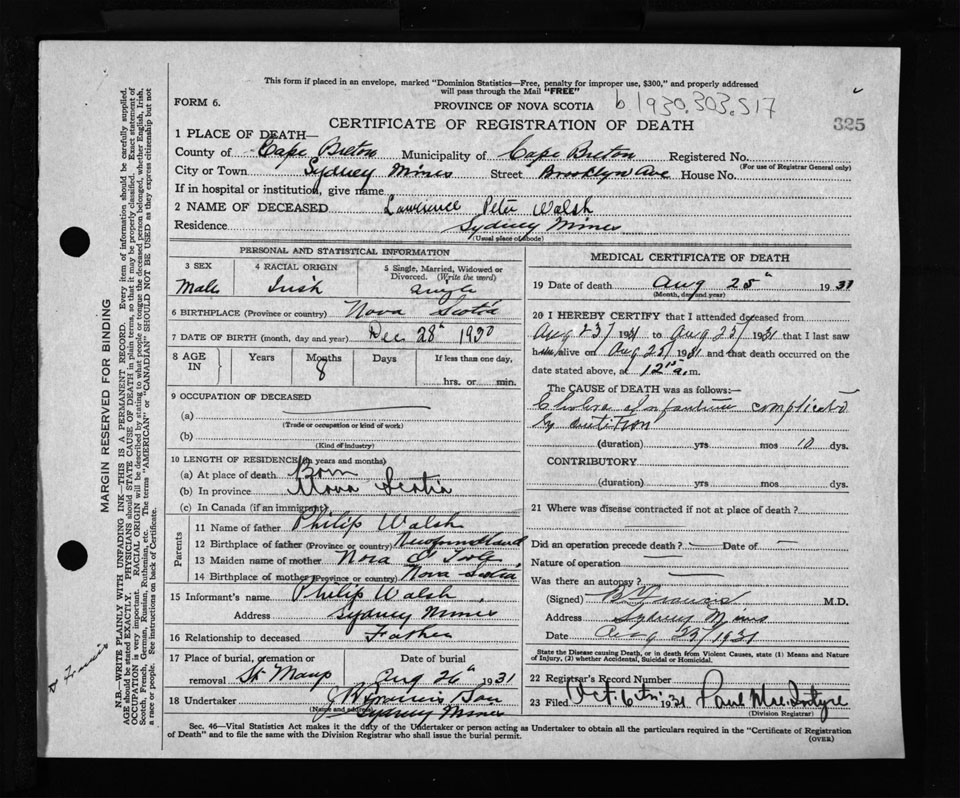 This form if placed in an envelope, marked "Dominion Statistics—Free, penalty for improper use, $300," and properly addressed
will pass through the Mail "FREE"
FORM 6.
PROVINCE OF NOVA SCOTIA
b 1930.303.517
CERTIFICATE OF REGISTRATION OF DEATH
325
1 PLACE OF DEATH—
County of Cape Breton Municipality of Cape Breton Registered No.
(For use of Registrar General only)
City or Town Sydney Mines Street Brooklyn Ave House No.
If in hospital or institution, give name
2 NAME OF DECEASED Lawrence Peter Walsh
Residence Sydney Mines
(Usual place of abode)
PERSONAL AND STATISTICAL INFORMATION
3 SEX
Male
4 RACIAL ORIGIN
Irish
5 Single, Married, Widowed or
Divorced. (Write the word)
single
6 BIRTHPLACE (Province or country) Nova Scotia
7 DATE OF BIRTH (month, day and year) Dec 28th 1930
8 AGE IN
Years
Months
8
Days
If less than one day,
hrs. or min.
9 OCCUPATION OF DECEASED
(a)
(Trade or occupation or kind of work)
(b)
(Kind of industry)
10 LENGTH OF RESIDENCE (in years and months)
(a) At place of death Born
(b) In province Nova Scotia
(c) In Canada (if an immigrant)
Parents
11 Name of father Philip Walsh
12 Birthplace of father (Province or country) Newfoundland
13 Maiden name of mother Nora
14 Birthplace of mother (Province or country) Nova Scotia
15 Informant's name Philip Walsh
Address Sydney Mines
16 Relationship to deceased Father
17 Place of burial, cremation or
removal St Marys
Date of burial
Aug 26th 1931
18 Undertaker
(Name and address)
Sydney Mines
MEDICAL CERTIFICATE OF DEATH
19 Date of death Aug 25th 1931
(Month, day and year)
20 I HEREBY CERTIFY that I attended deceased from
Aug 23/ 1931 to Aug 25/ 1931 that I last saw
him alive on Aug 25/ 1931 and that death occurred on the
date stated above, at 12 a.m.
The CAUSE of DEATH was as follows:—
Cholera Infantum complicated
by dentition
(duration) yrs mos 10 dys.
CONTRIBUTORY
(duration) yrs mos dys.
21 Where was disease contracted if not at place of death?
Did an operation precede death? Date of
Nature of operation
Was there an autopsy?
(Signed) Francis M.D.
Address Sydney Mines
Date Aug 25/1931
State the Disease causing Death, or in death from Violent Causes, state (1) Means and
Nature of Injury, (2) whether Accidental, Suicidal or Homicidal.
22 Registrar's Record Number
23 Filed Oct. 6th 1931 Paul MacIntyre
(Division Registrar)
Sec. 46—Vital Statistics Act makes it the duty of the Undertaker or person acting as Undertaker to obtain all the particulars required in the "Certificate of Registration
of Death" and to file the same with the Division Registrar who shall issue the burial permit.
(OVER)
MARGIN RESERVED FOR BINDING
N.B.—WRITE PLAINLY WITH UNFADING INK—THIS IS A PERMANENT RECORD. Every item of information should be carefully supplied.
AGE should be stated EXACTLY. PHYSICIANS should STATE CAUSE OF DEATH in plain terms, so that it may be properly classified. Exact statement of
OCCUPATION is very important. RACIAL ORIGIN will be described by stating to what people or tongue the deceased person belonged, whether English, Irish,
Scotch, French, German, Russian, Ruthenian, etc. The terms "AMERICAN" or "CANADIAN" SHOULD NOT BE USED as they express citizenship but not
a race or people. See instructions on back of Certificate.